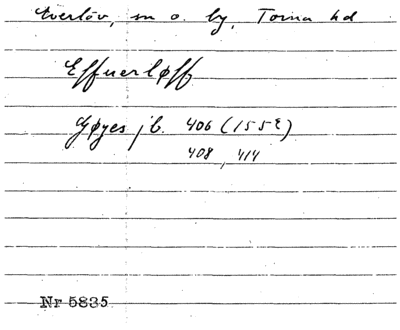 Everlöv, sn o. by, Torna hd
Effuerløff
Gøyes jb. 406 (1552)
408, 414
Nr 5835